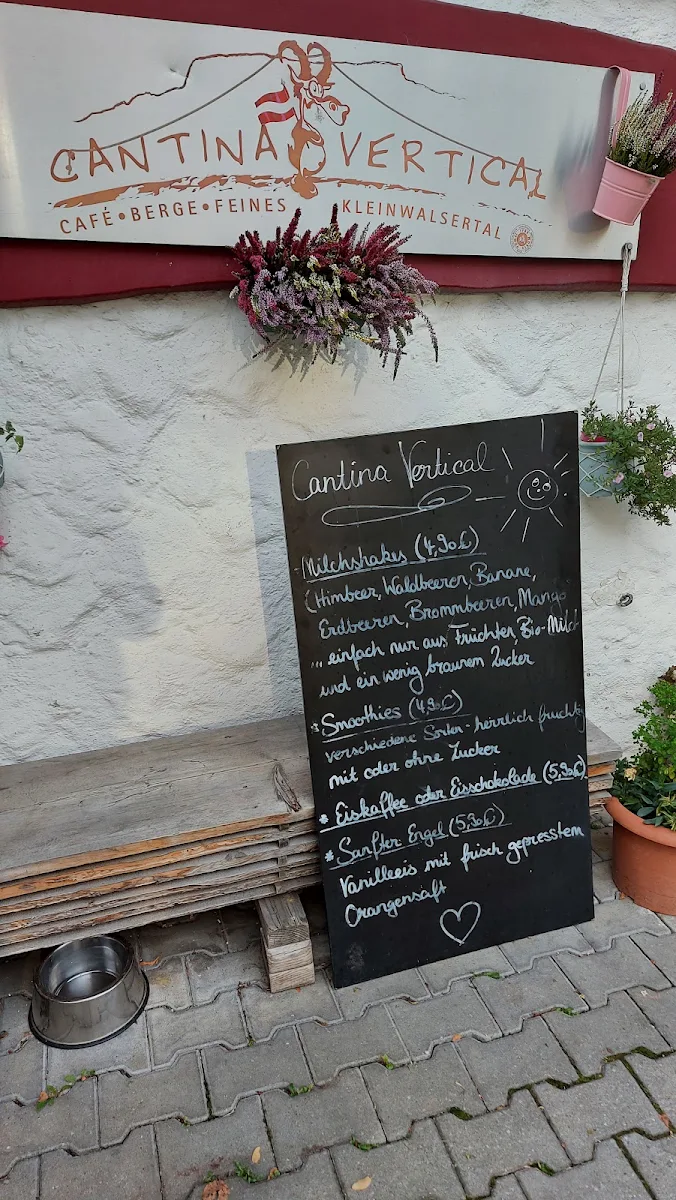 CANTINA VERTICAL
CAFÉ • BERGE • FEINES KLEINWALSERTAL
Cantina Vertical
Milchshakes (4,90€)
(Himbeer, Waldbeeren, Banane,
Erdbeeren, Brommbeeren, Mango
... einfach nur aus Früchten, Bio-Milch
und ein wenig braunem Zucker
* Smoothies (4,90€)
verschiedene Sorten - herrlich fruchtig
mit oder ohne Zucker
* Eiskaffee oder Eisschokolade (5,90€)
* Sanfter Engel (5,90€)
Vanilleeis mit frisch gepresstem
Orangensaft